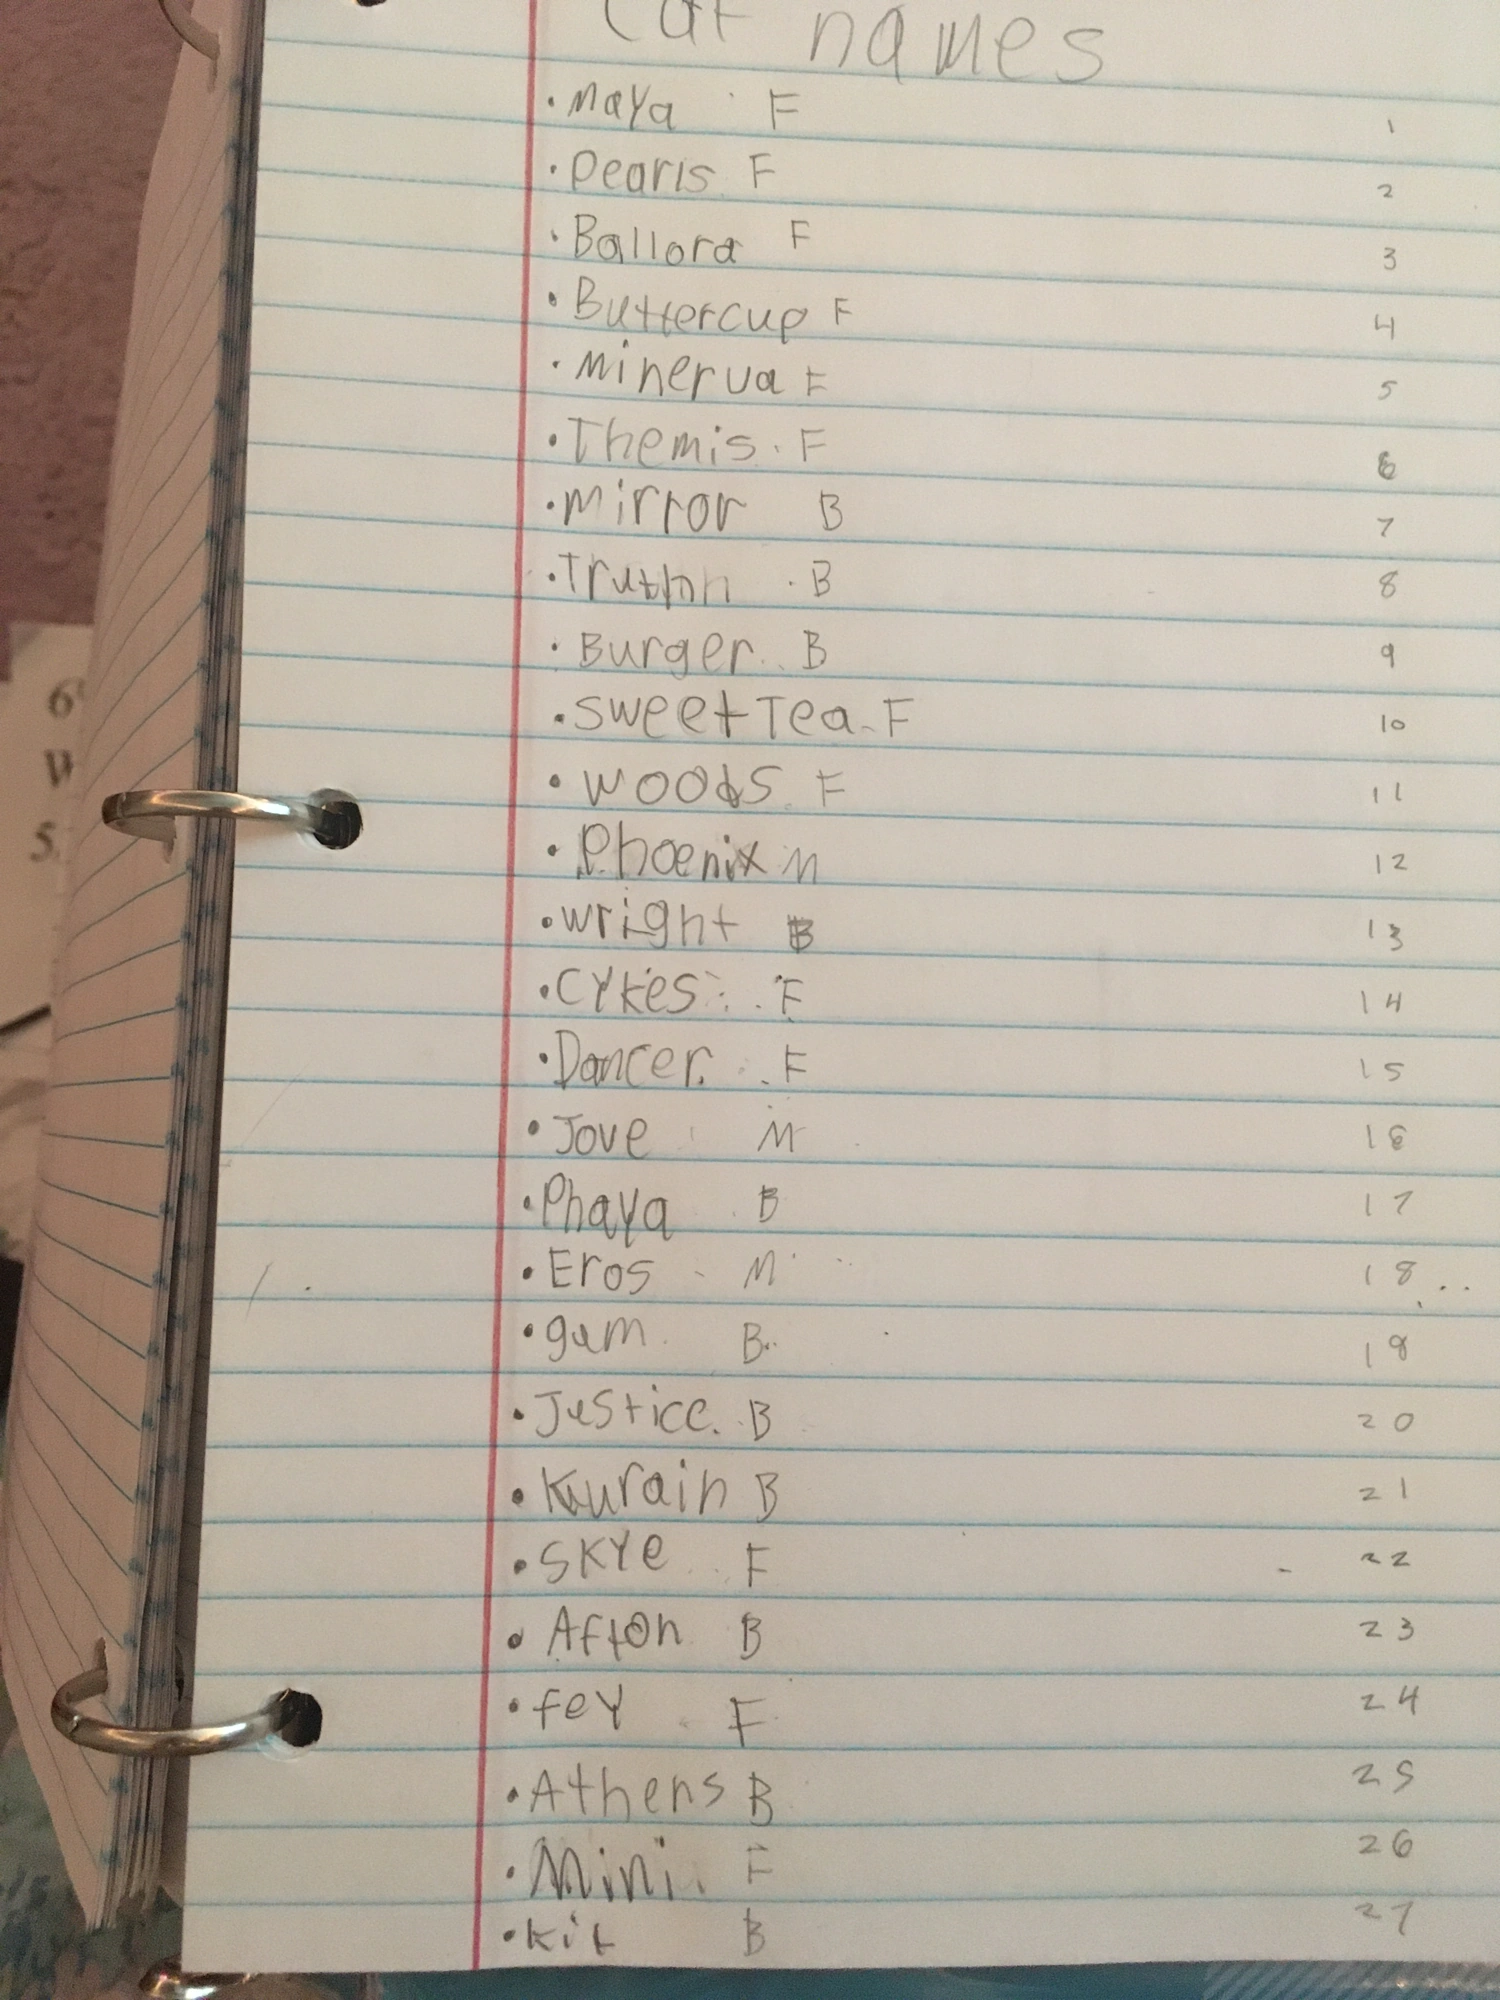 Cat names
• Maya F 1
• Pearls F 2
• Ballora F 3
• Buttercup F 4
• Minerva F 5
• Themis F 6
• Mirror B 7
• Truth B 8
• Burger B 9
• Sweet Tea F 10
• Woods F 11
• Phoenix M 12
• Wright B 13
• Cykes F 14
• Dancer F 15
• Jove M 16
• Phaya B 17
• Eros M 18
• gum B 19
• Justice B 20
• Kurain B 21
• Skye F 22
• Afton B 23
• fey F 24
• Athens B 25
• Mini F 26
• Kit B 27
6
W
5